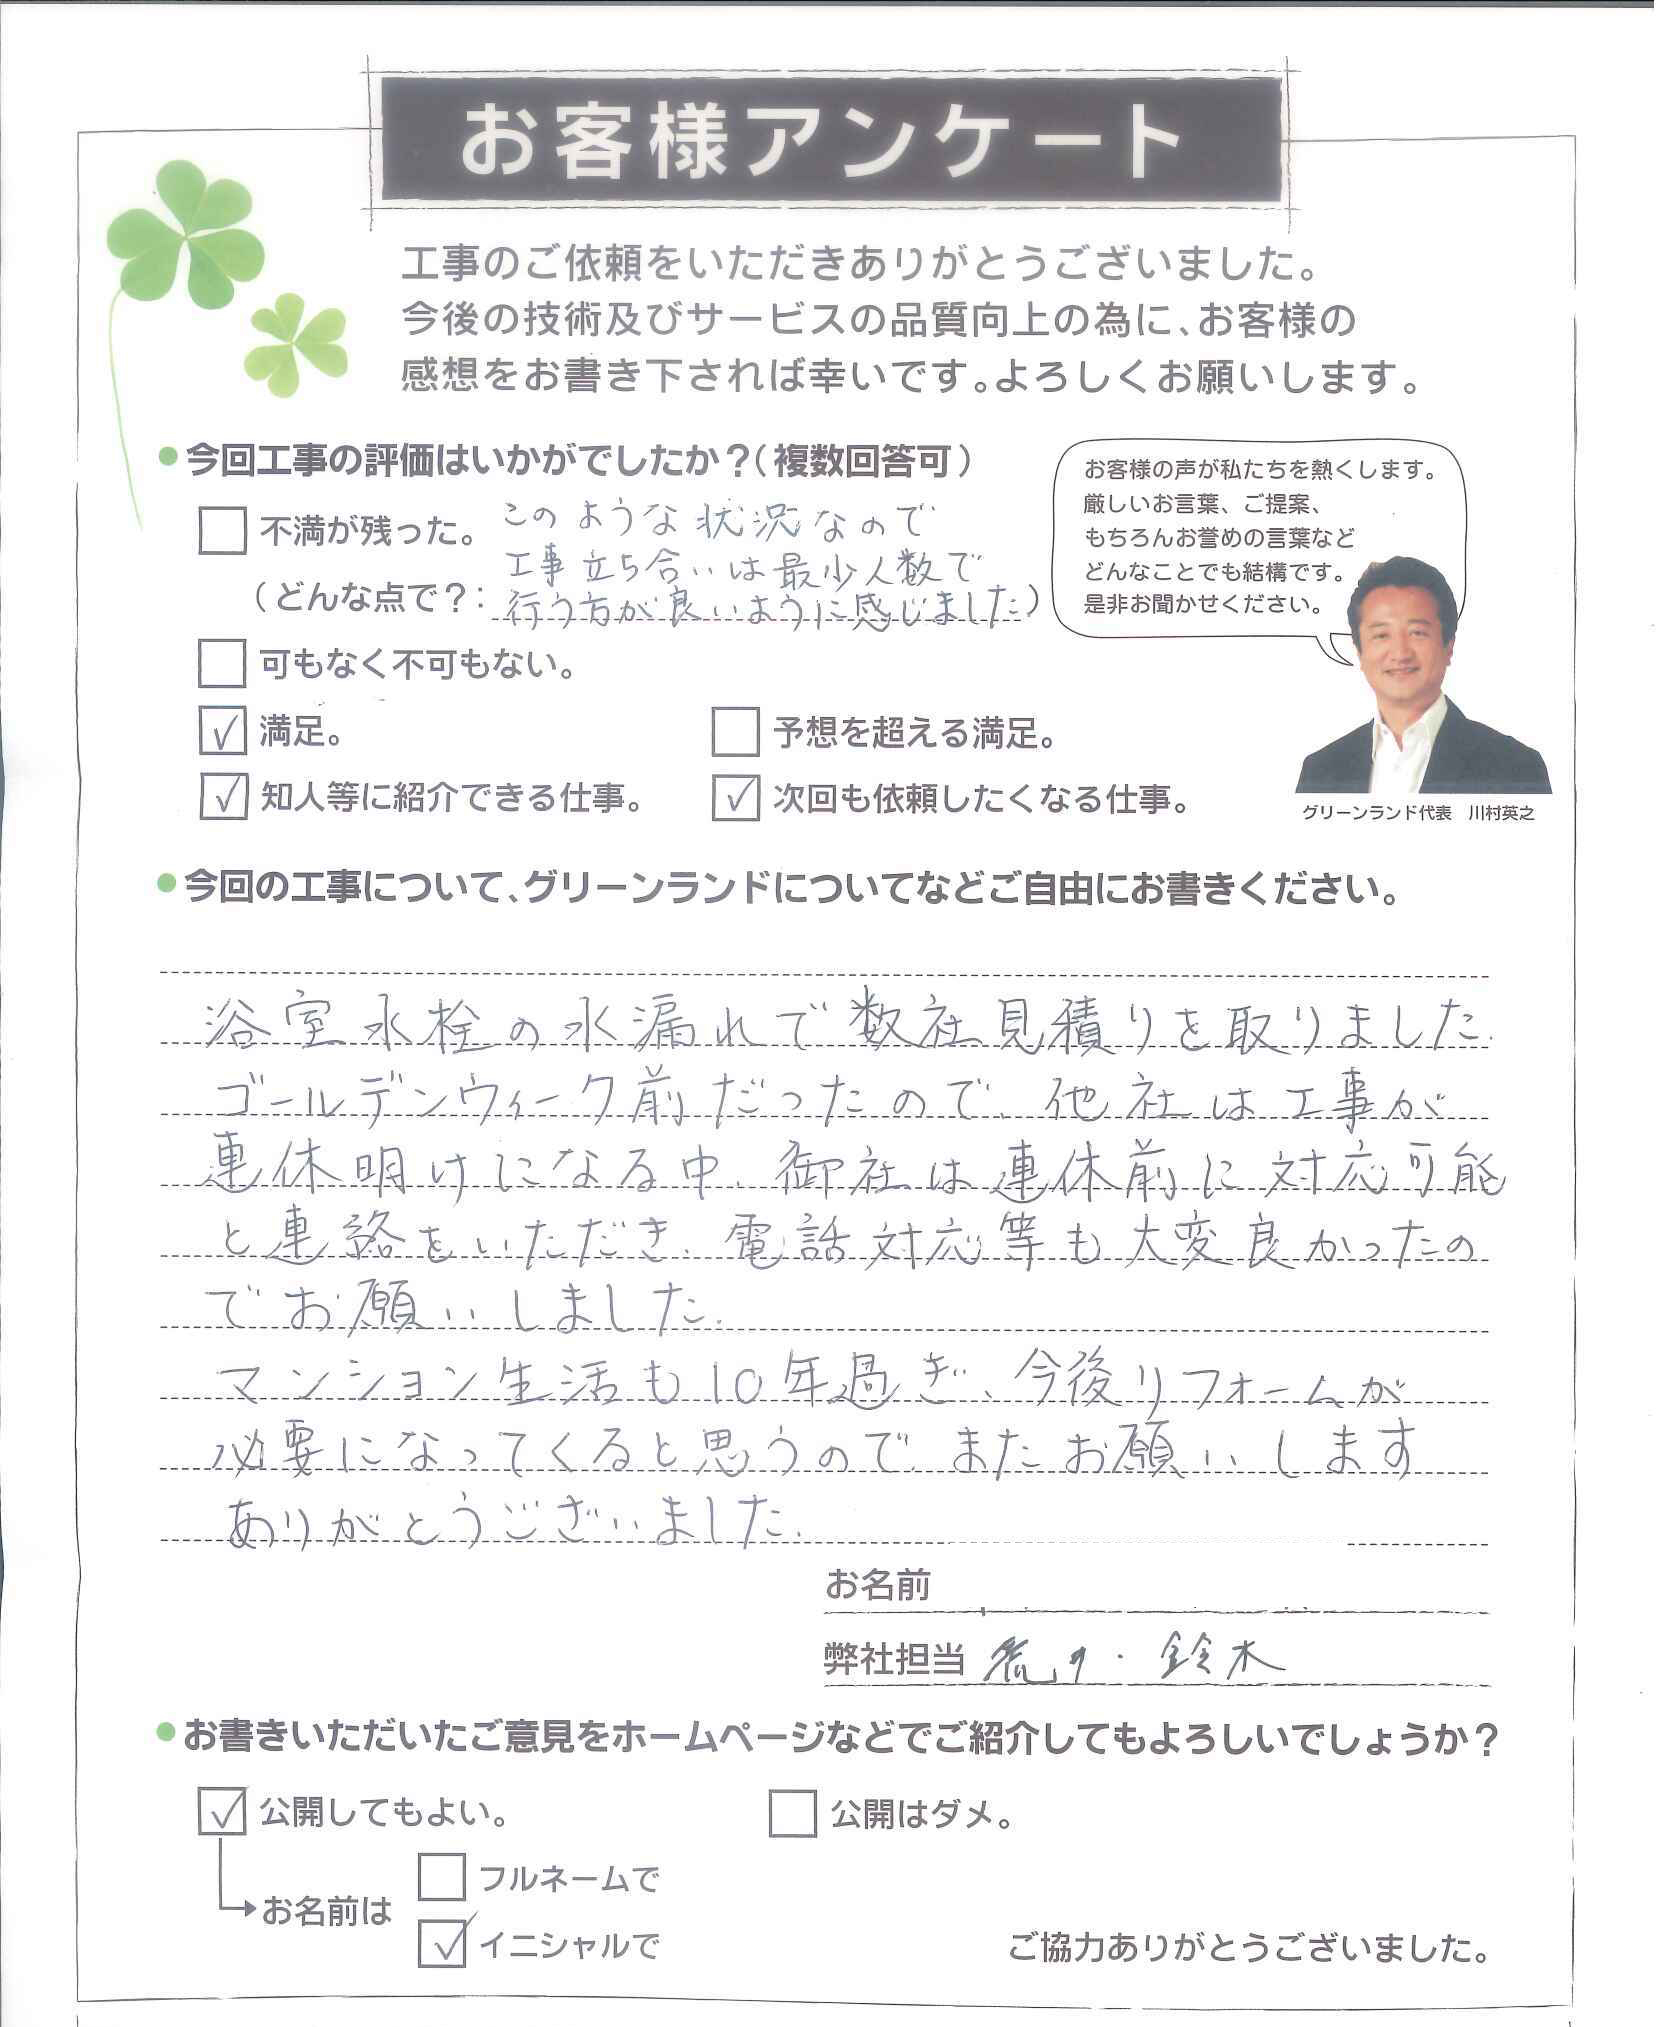 お客様アンケート
工事のご依頼をいただきありがとうございました。
今後の技術及びサービスの品質向上の為に、お客様の
感想をお書き下されば幸いです。よろしくお願いします。
今回工事の評価はいかがでしたか？（複数回答可）
不満が残った。
このような状況なので
工事立ち合いは最少人数で
（どんな点で？：行う方が良いように感じました）
お客様の声が私たちを熱くします。
厳しいお言葉、ご提案、
もちろんお誉めの言葉など
どんなことでも結構です。
是非お聞かせください。
可もなく不可もない。
✓ 満足。
予想を超える満足。
✓ 知人等に紹介できる仕事。
✓ 次回も依頼したくなる仕事。
グリーンランド代表　川村英之
今回の工事について、グリーンランドについてなどご自由にお書きください。
浴室水栓の水漏れで数社見積りを取りました.
ゴールデンウィーク前だったので、他社は工事が
連休明けになる中、御社は連休前に対応可能
と連絡をいただき、電話対応等も大変良かったの
でお願いしました.
マンション生活も10年過ぎ、今後リフォームが
必要になってくると思うので、またお願いします
ありがとうございました.
お名前
弊社担当 ・鈴木
お書きいただいたご意見をホームページなどでご紹介してもよろしいでしょうか？
✓ 公開してもよい。
公開はダメ。
お名前は
フルネームで
✓ イニシャルで
ご協力ありがとうございました。